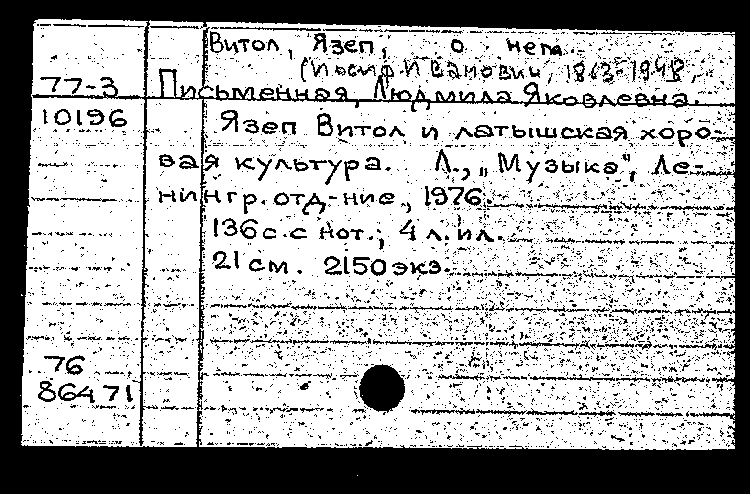 Витол, Язеп, о нем
(Иосиф Иванович, 1863-1948.
77-3 Письменная, Людмила Яковлевна.
10196 Язеп Витол и латышская хоро-
вая культура. Л., „Музыка“, Ле-
нингр. отд-ние, 1976.
136 с. с нот.; 4 л. ил.
21 см. 2150 экз.
76
86471